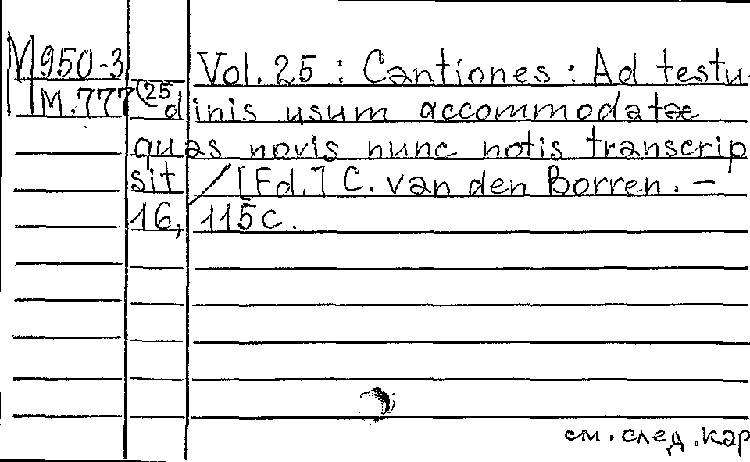 M950-3 Vol. 25 : Cantiones : Ad testu
M.777 (25 dinis usum accommodatæ
quas novis nunc notis transcrip
sit / [Ed.] C. van den Borren. –
16, 115 c.
см. след. кар